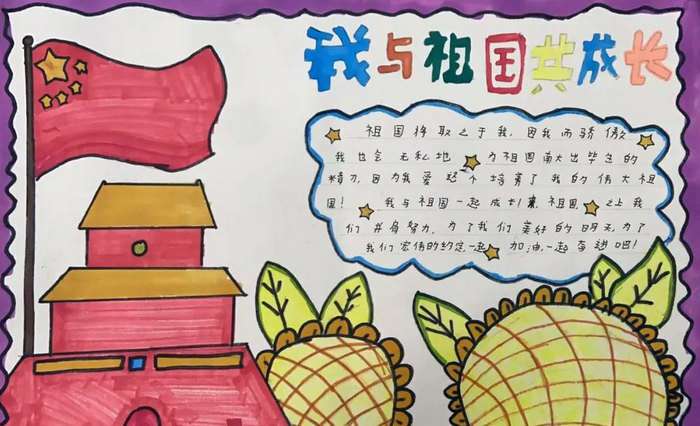 我与祖国共成长
祖国将取之于我,因我而骄傲
我也会无私地 为祖国献出毕生的
精力,因为我爱这个培育了我的伟大祖
国! 我与祖国一起成长 祖国 之上我
们并肩努力,为了我们美好的明天,为了
我们宏伟的约定一起 加油一起奋进吧!